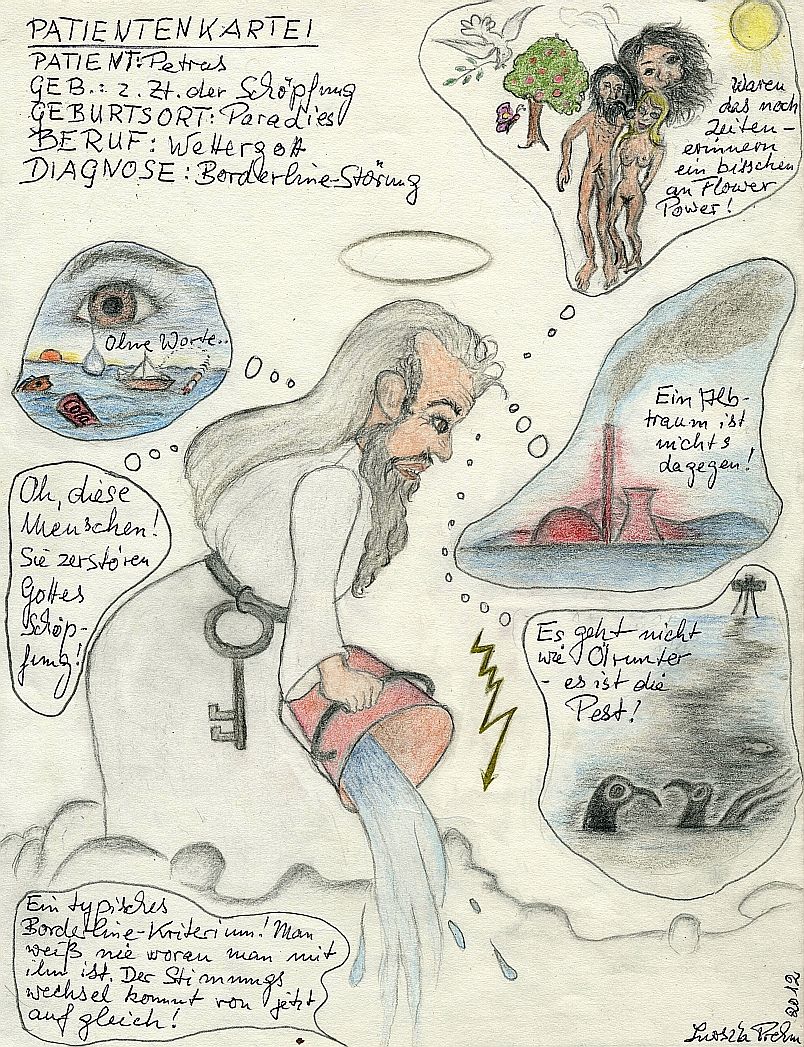 PATIENTENKARTEI
PATIENT: Petrus
GEB.: z. Zt. der Schöpfung
GEBURTSORT: Paradies
BERUF: Wettergott
DIAGNOSE: Borderline-Störung
Waren
das noch
Zeiten-
erinnern
ein bisschen
an Flower
Power!
Ohne Worte..
Coca
Ein Alb-
traum ist
nichts
dagegen!
Oh, diese
Menschen!
Sie zerstören
Gottes
Schöp-
fung!
Es geht nicht
wie Öl runter
- es ist die
Pest!
Ein typisches
Borderline-Kriterium! Man
weiß nie woran man mit
ihm ist. Der Stimmungs
wechsel kommt von jetzt
auf gleich!
2012